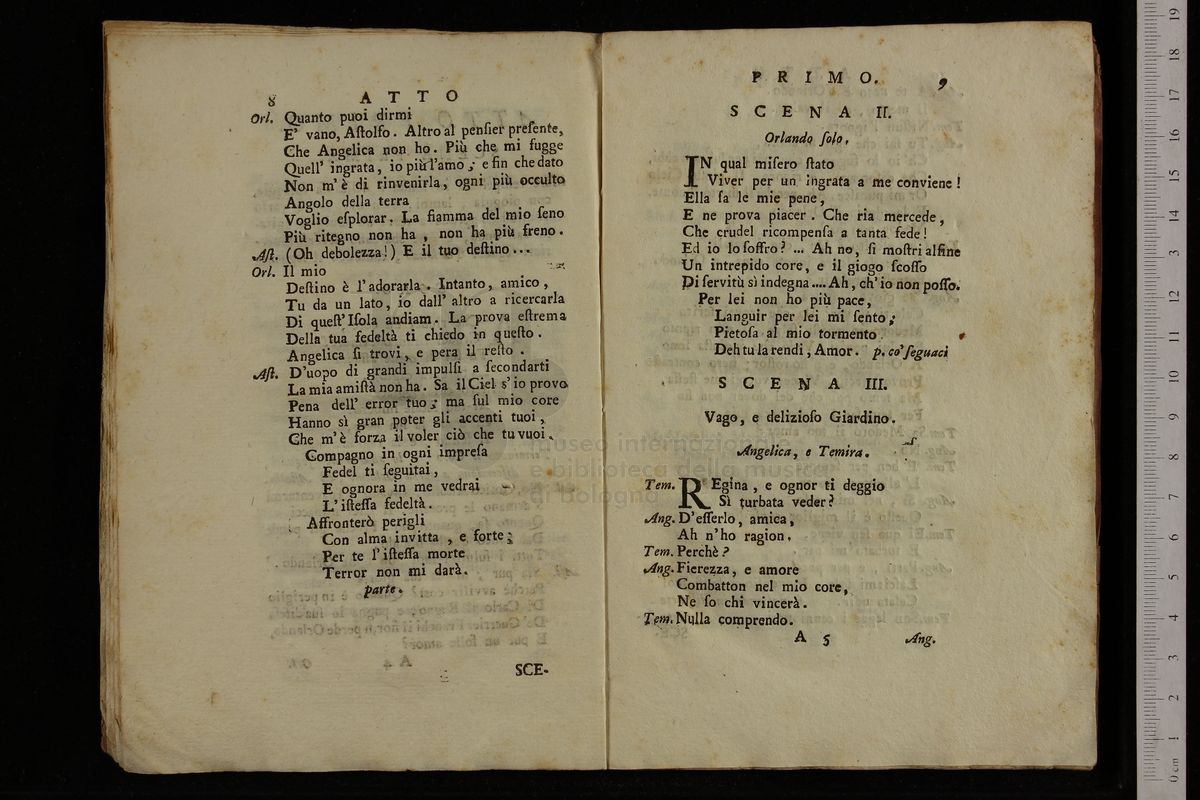 8
ATTO
Orl. Quanto puoi dirmi
E' vano, Aſtolfo. Altro al penſier preſente,
Che Angelica non ho. Più che mi fugge
Quell' ingrata, io più l'amo; e fin che dato
Non m'è di rinvenirla, ogni più occulto
Angolo della terra
Voglio eſplorar. La fiamma del mio ſeno
Più ritegno non ha, non ha più freno.
Aſt. (Oh debolezza!) E il tuo deſtino...
Orl. Il mio
Deſtino è l'adorarla. Intanto, amico,
Tu da un lato, io dall' altro a ricercarla
Di queſt' Iſola andiam. La prova eſtrema
Della tua fedeltà ti chiedo in queſto.
Angelica ſi trovi, e pera il reſto.
Aſt. D'uopo di grandi impulſi a ſecondarti
La mia amiſtà non ha. Sa il Ciel s'io provo
Pena dell' error tuo; ma ſul mio core
Hanno sì gran poter gli accenti tuoi,
Che m'è forza il voler ciò che tu vuoi.
Compagno in ogni impreſa
Fedel ti ſeguitai,
E ognora in me vedrai
L'iſteſſa fedeltà.
Affronterò perigli
Con alma invitta, e forte;
Per te l'iſteſſa morte
Terror non mi darà.
parte.
SCE-
PRIMO.
9
SCENA II.
Orlando ſolo,
IN qual miſero ſtato
Viver per un ingrata a me conviene!
Ella ſa le mie pene,
E ne prova piacer. Che ria mercede,
Che crudel ricompenſa a tanta fede!
Ed io lo ſoffro? ... Ah no, ſi moſtri alfine
Un intrepido core, e il giogo ſcoſſo
Di ſervitù sì indegna.... Ah, ch'io non poſſo.
Per lei non ho più pace,
Languir per lei mi ſento;
Pietoſa al mio tormento
Deh tu la rendi, Amor. p. co' ſeguaci
SCENA III.
Vago, e delizioſo Giardino.
Angelica, e Temira.
Tem. REgina, e ognor ti deggio
Sì turbata veder?
Ang. D'eſſerlo, amica,
Ah n'ho ragion.
Tem. Perchè?
Ang. Fierezza, e amore
Combatton nel mio core,
Ne ſo chi vincerà.
Tem. Nulla comprendo.
A 5
Ang.
museo internazionale
e biblioteca della musica
di bologna
0 cm 1 2 3 4 5 6 7 8 9 10 11 12 13 14 15 16 17 18 19